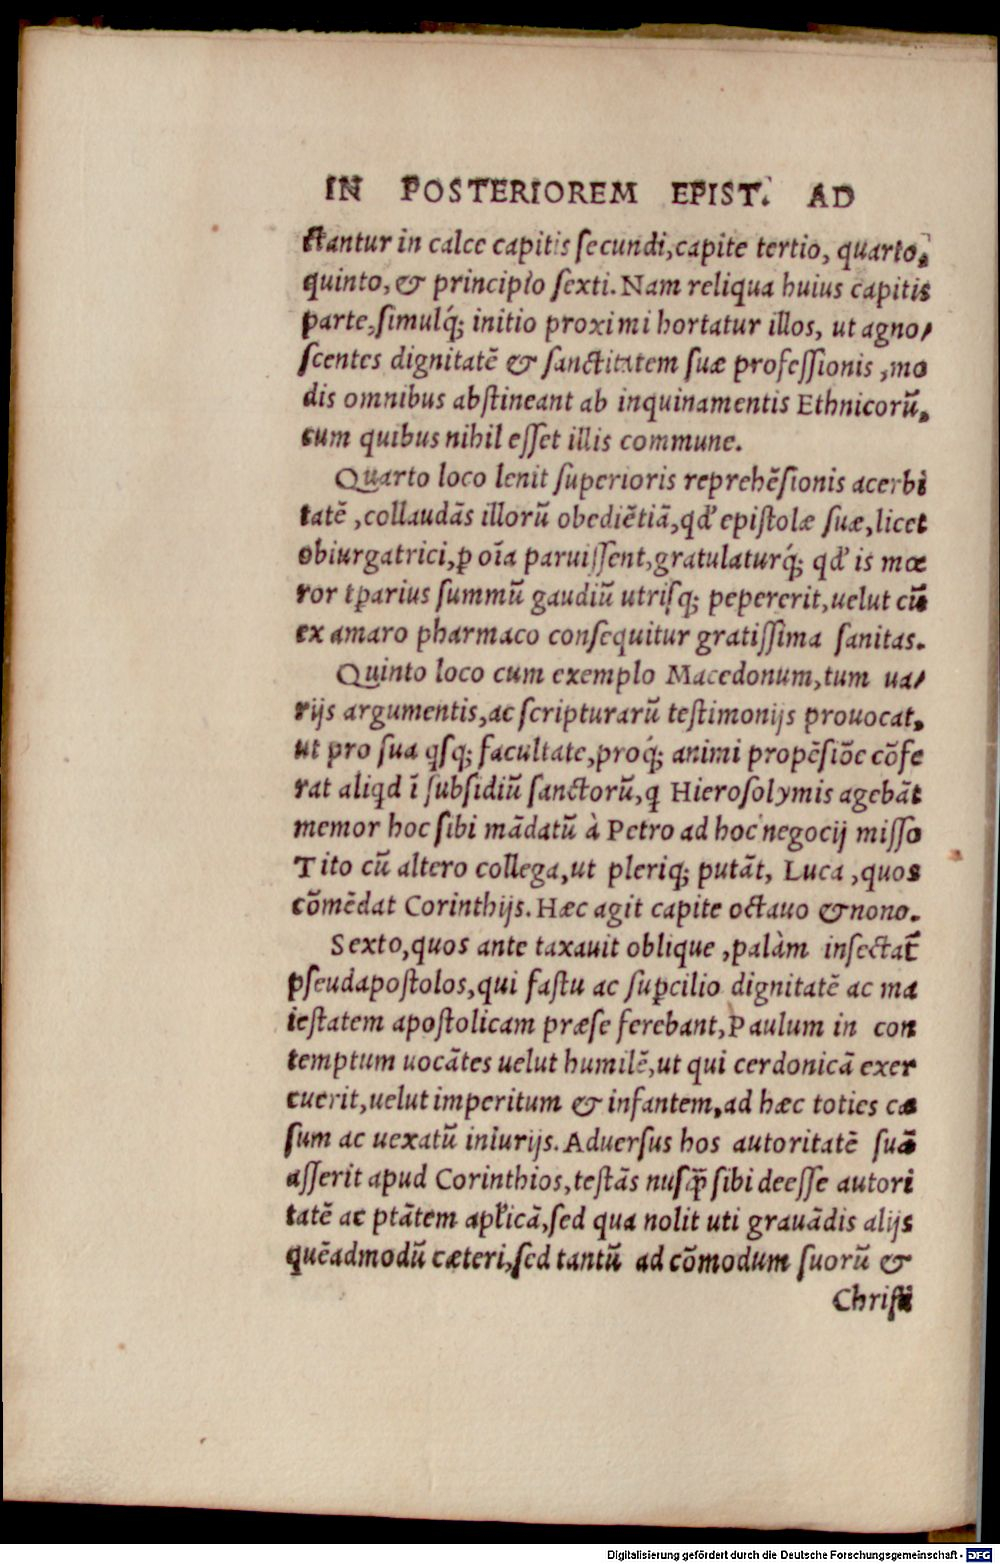 IN POSTERIOREM EPIST. AD
ctantur in calce capitis secundi, capite tertio, quarto,
quinto, & principio sexti. Nam reliqua huius capitis
parte, simulq́; initio proximi hortatur illos, ut agno/
scentes dignitatē & sanctitatem suæ professionis, mo
dis omnibus abstineant ab inquinamentis Ethnicorū,
cum quibus nihil esset illis commune.
Quarto loco lenit superioris reprehēsionis acerbi
tatē, collaudās illorū obediētiā, qđ epistolæ suæ, licet
obiurgatrici, ꝑ oīa paruissent, gratulaturq́; qđ is mœ
ror tꝑarius summū gaudiū utrisq; pepererit, uelut cū
ex amaro pharmaco consequitur gratissima sanitas.
Quinto loco cum exemplo Macedonum, tum ua/
rijs argumentis, ac scripturarū testimonijs prouocat,
ut pro sua qsq; facultate, proq́; animi propēsiōe cōfe
rat aliqd ī subsidiū sanctorū, q Hierosolymis agebāt
memor hoc sibi mādatū à Petro ad hoc negocij misso
Tito cū altero collega, ut pleriq; putāt, Luca, quos
cōmēdat Corinthijs. Hæc agit capite octauo & nono.
Sexto, quos ante taxauit oblique, palàm insectat̄
pseudapostolos, qui fastu ac suꝑcilio dignitatē ac ma
iestatem apostolicam præse ferebant, Paulum in con
temptum uocātes uelut humilē, ut qui cerdonicā exer
cuerit, uelut imperitum & infantem, ad hæc toties cæ
sum ac uexatū iniurijs. Aduersus hos autoritatē suā
asserit apud Corinthios, testās nusq̄ sibi deesse autori
tatē ac ptātem apl'icā, sed qua nolit uti grauādis alijs
quēadmodū cæteri, sed tantū ad cōmodum suorū &
Christi
Digitalisierung gefördert durch die Deutsche Forschungsgemeinschaft - DFG